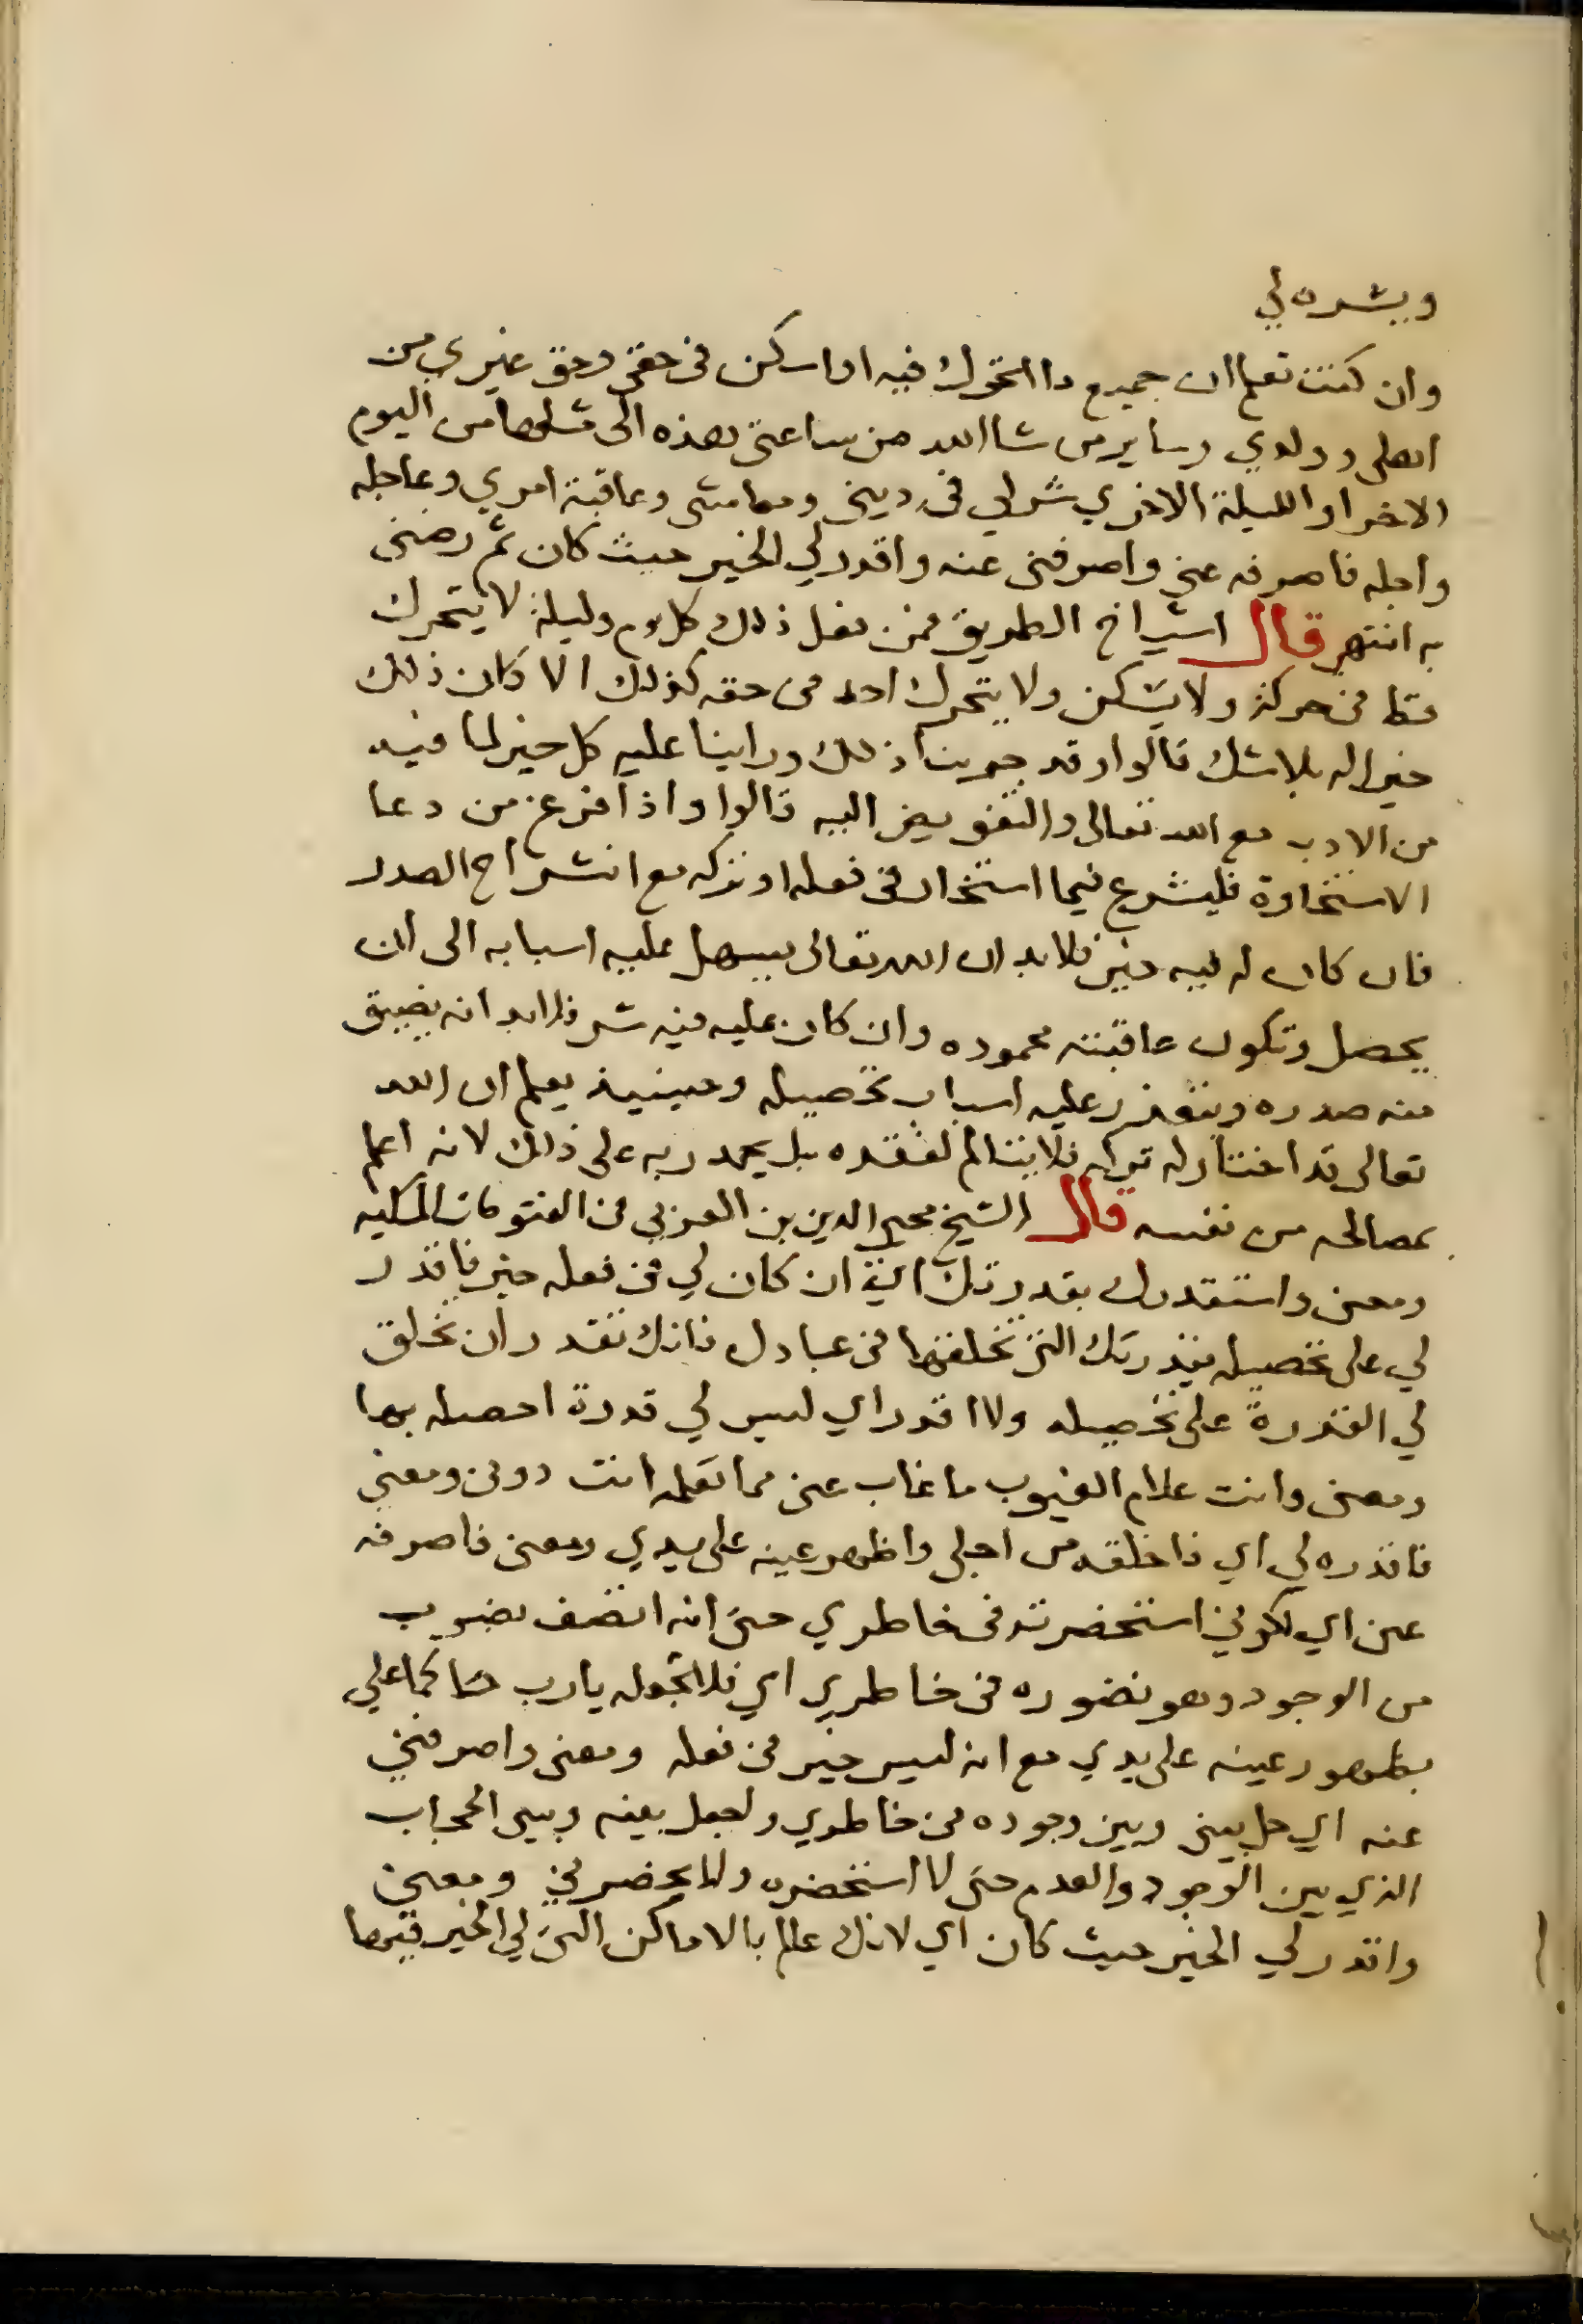 ويسره لي
وان كنت تعلم ان جميع ما اتحرك فيه او اسكن في حقي وحق غيري من
اهلي وولدي وساير من شا الله من ساعتي هذه الى مثلها من اليوم
الاخر او الليلة الاخري شر لي في ديني ومعاشي وعاقبة امري وعاجله
واجله فاصرفه عني واصرفني عنه واقدر لي الخير حيث كان ثم رضني
به انتهى قال اشياخ الطريق فمن فعل ذلك كل يوم وليلة لا يتحرك
قط في حركة ولا يسكن ولا يتحرك احد في حقه كذلك الا كان ذلك
خيرا له بلا شك قالوا وقد جربنا ذلك وراينا عليه كل خير لما فيه
من الادب مع الله تعالى والتفويض اليه قالوا واذا فرغ من دعا
الاستخارة فليشرع فيما استخار في فعله او تركه مع انشراح الصدر
فان كان له فيه خير فلا بد ان الله تعالى يسهل عليه اسبابه الى ان
يحصل وتكون عاقبته محموده وان كان عليه فيه شر فلا بد انه يضيق
منه صدره ويتعذر عليه اسباب تحصيله وحينيذ يعلم ان الله
تعالى قد اختار له تركه فلا يتالم لفقده بل يحمد ربه على ذلك لانه اعلم
بمصالحه من نفسه قال الشيخ محيي الدين بن العربي في الفتوحات المكيه
ومعنى واستقدرك بقدرتك اي ان كان لي في فعله خير فاقدر
لي على تحصيله بقدرتك التي تخلقها في عبادك فانك تقدر ان تخلق
لي القدرة على تحصيله ولا اقدر اي ليس لي قدرة احصله بها
ومعنى وانت علام الغيوب ما غاب عني مما تعلمه انت دوني ومعنى
فاقدره لي اي فاخلقه من اجلي واظهر عينه على يدي ومعنى فاصرفه
عني اي لكوني استحضرته في خاطري حتى انه اتصف بضرب
من الوجود وهو تصوره في خاطري اي فلا تجعله يا رب حاكما علي
بظهور عينه على يدي مع انه ليس خير في فعله ومعنى واصرفني
عنه اي حل بيني وبين وجوده في خاطري واجعل بينه وبيني الحجاب
الذي بين الوجود والعدم حتى لا استحضره ولا يحضرني ومعنى
واقدر لي الخير حيث كان اي لانك عالم بالاماكن التي لي الخير فيها